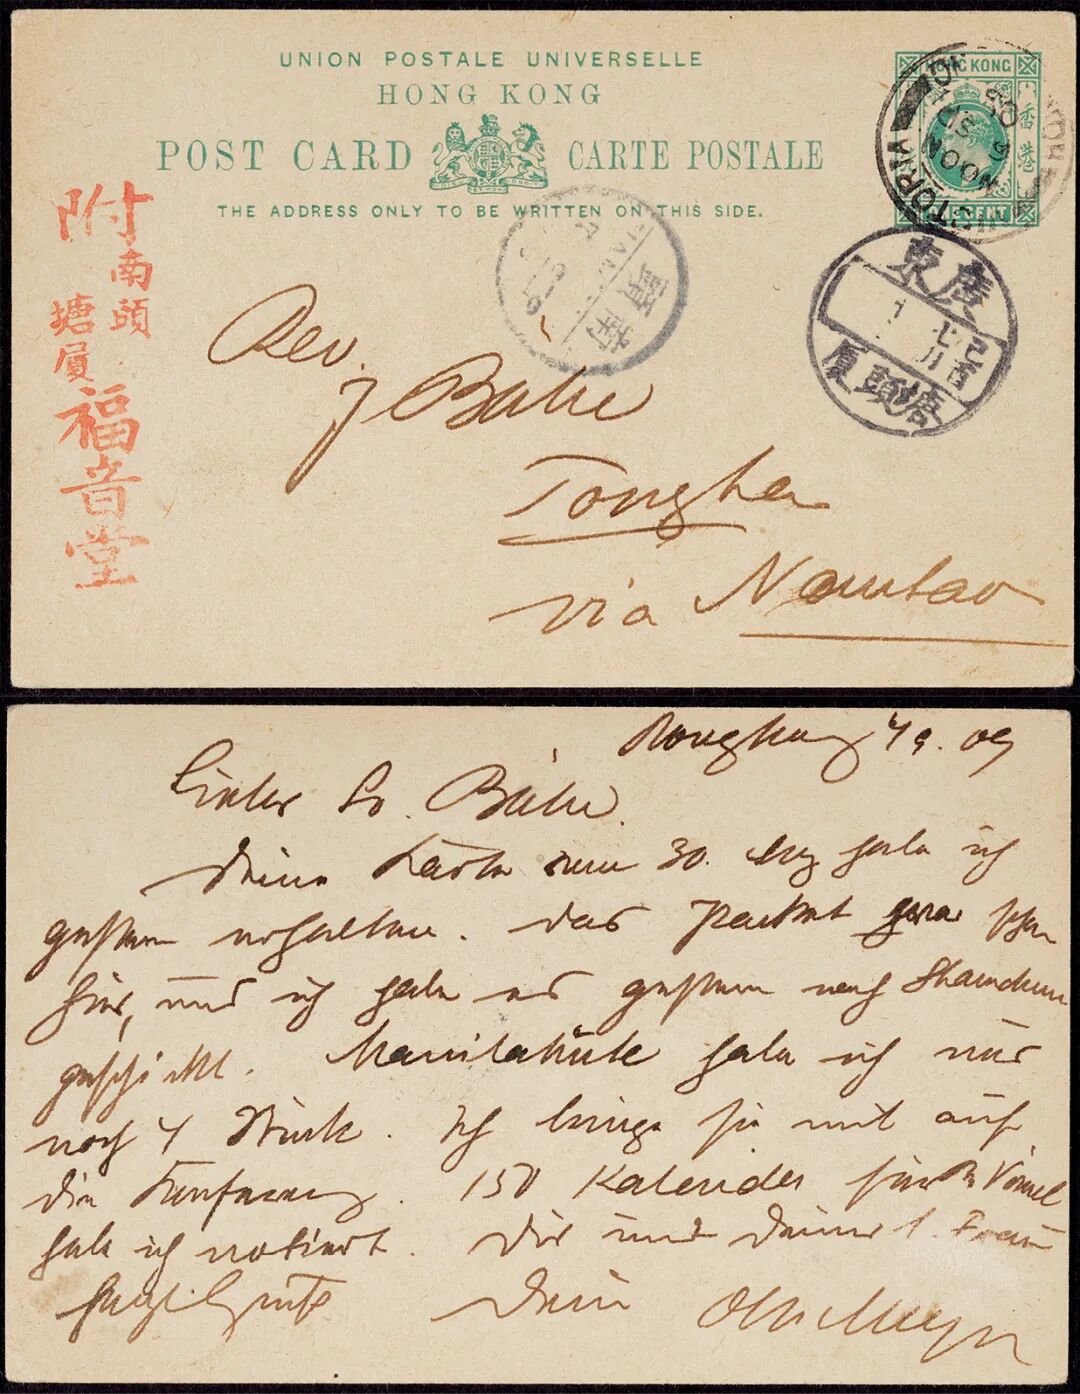 UNION POSTALE UNIVERSELLE
HONG KONG
POST CARD CARTE POSTALE
THE ADDRESS ONLY TO BE WRITTEN ON THIS SIDE.
HONG KONG
香港
ONE CENT
VICTORIA
NOON
附南頭
塘厦
福音堂
南頭
廣東
己酉
七月
塘頭厦
Rev.
J Bähr
Tongha
via Namtao
Hongkong 4/9. 09
Lieber Br. Bähr.
Deine Karte vom 30. Aug habe ich
gestern erhalten. Das Packet war schon
hier, und ich habe es gestern nach Shamchun
geschickt. Manilahüte habe ich nur
noch 4 Stück. Ich bringe sie mit auf
die Konferenz. 150 Kalender für Br Vömel
habe ich notiert. Dir und Deiner l. Frau
herzl. Grüße Dein